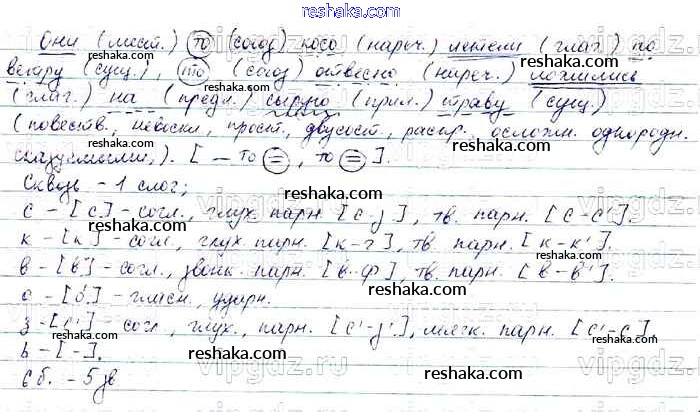 reshaka.com
Они (мест.) то (союз) косо (нареч.) летели (глаг.) по
ветру (сущ.), то (союз) отвесно (нареч.) ложились
(глаг.) на (предл.) сырую (прил.) траву (сущ.)
(повеств., невоскл., прост., двусост., распр., осложн. однородн.
сказуемыми,). [ — то =, то = ].
Сквозь - 1 слог;
с - [с] - согл., глух. парн. [с-з], тв. парн. [с-с'].
к - [к] - согл., глух. парн. [к-г], тв. парн. [к-к'].
в - [в] - согл., звонк. парн. [в-ф], тв. парн. [в-в'].
о - [о́] - гласн., ударн.
з - [с'] - согл., глух., парн. [с'-з'], мягк. парн. [с'-с].
ь - [-].
6 б. - 5 зв